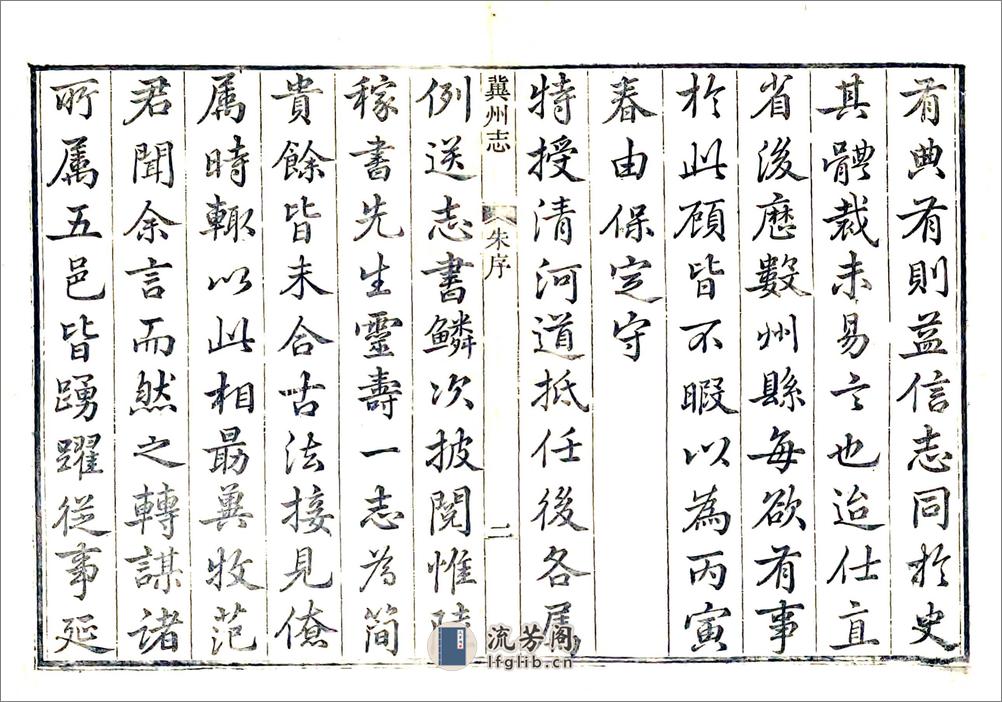 有典有則益信志同於史
其體裁未易言也迨仕直
省後歷數州縣每欲有事
於此顧皆不暇以為丙寅
春由保定守
特授清河道抵任後各属
冀州志 朱序 二
例送志書鱗次披閱惟陸
稼書先生靈壽一志為簡
貴餘皆未合古法接見僚
属時輒以此相勗冀牧范
君聞余言而然之轉謀諸
所属五邑皆踴躍從事延
流芳阁
lfglib.cn